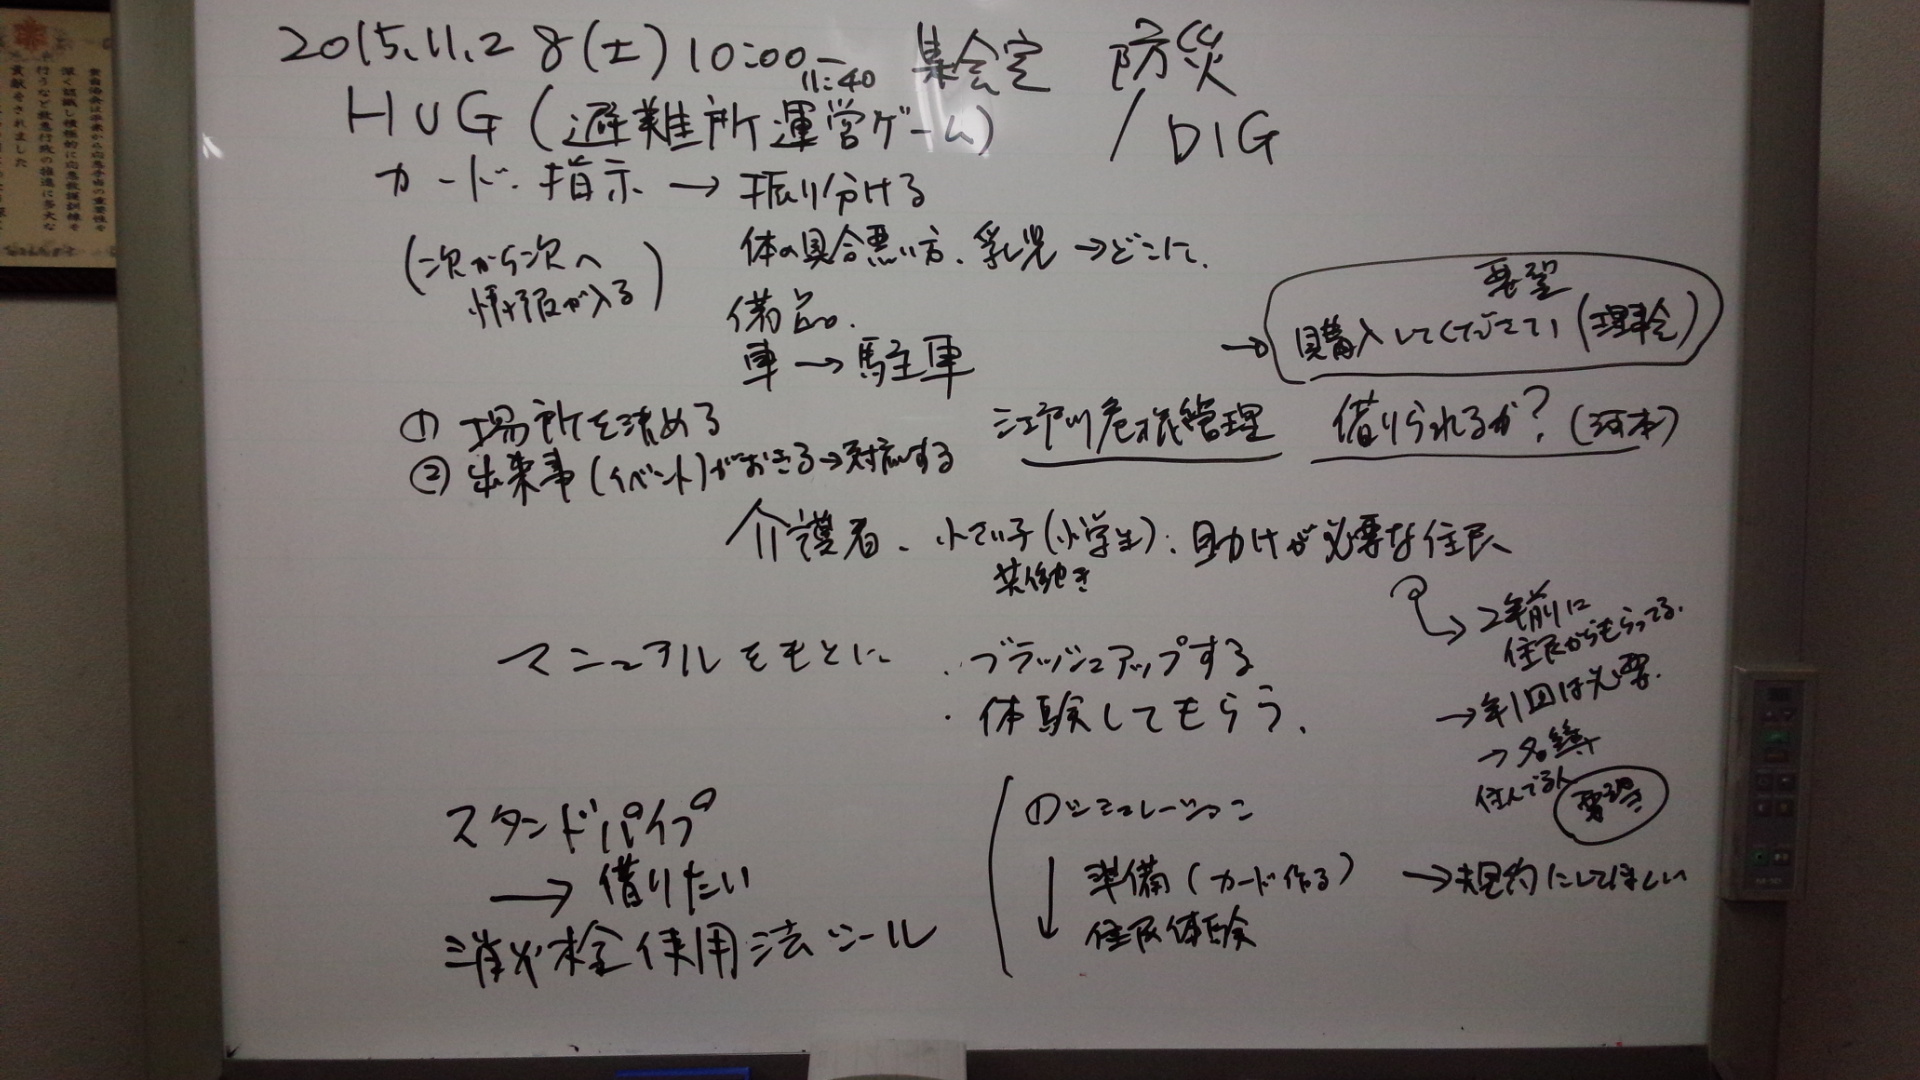 2015.11.28(土)10:00-11:40 集会室 防災
HUG(避難所運営ゲーム) / DIG
カード・指示→振り分ける
(次から次へ
情報が入る)
体の具合悪い方、乳児→どこに、
備品、
車→駐車
要望
→購入してください(理事会)
①場所を決める
②出来事(イベント)がおきる→対応する
江戸川危機管理 借りられるか?(河本)
介護者、小さい子(小学生)、助けが必要な住民、
共働き
→2年前に
住民からもらってる.
→年1回は必要.
→名簿
住んでる人
マニュアルをもとに
・ブラッシュアップする
・体験してもらう、
スタンドパイプ
→借りたい
消火栓使用法シール
①シミュレーション
↓準備(カード作る)
住民体験
→規約にしてほしい